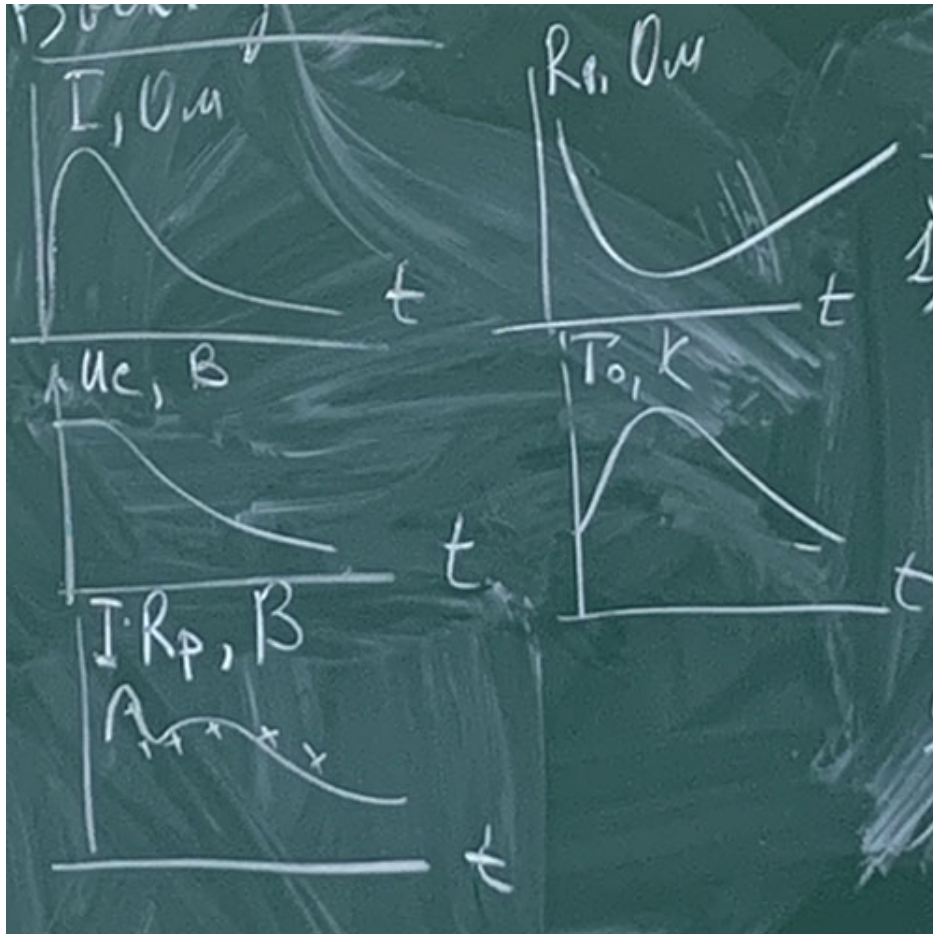 I, Ом
t
Rp, Ом
t
Uc, В
t
T₀, К
t
I·Rp, В
t